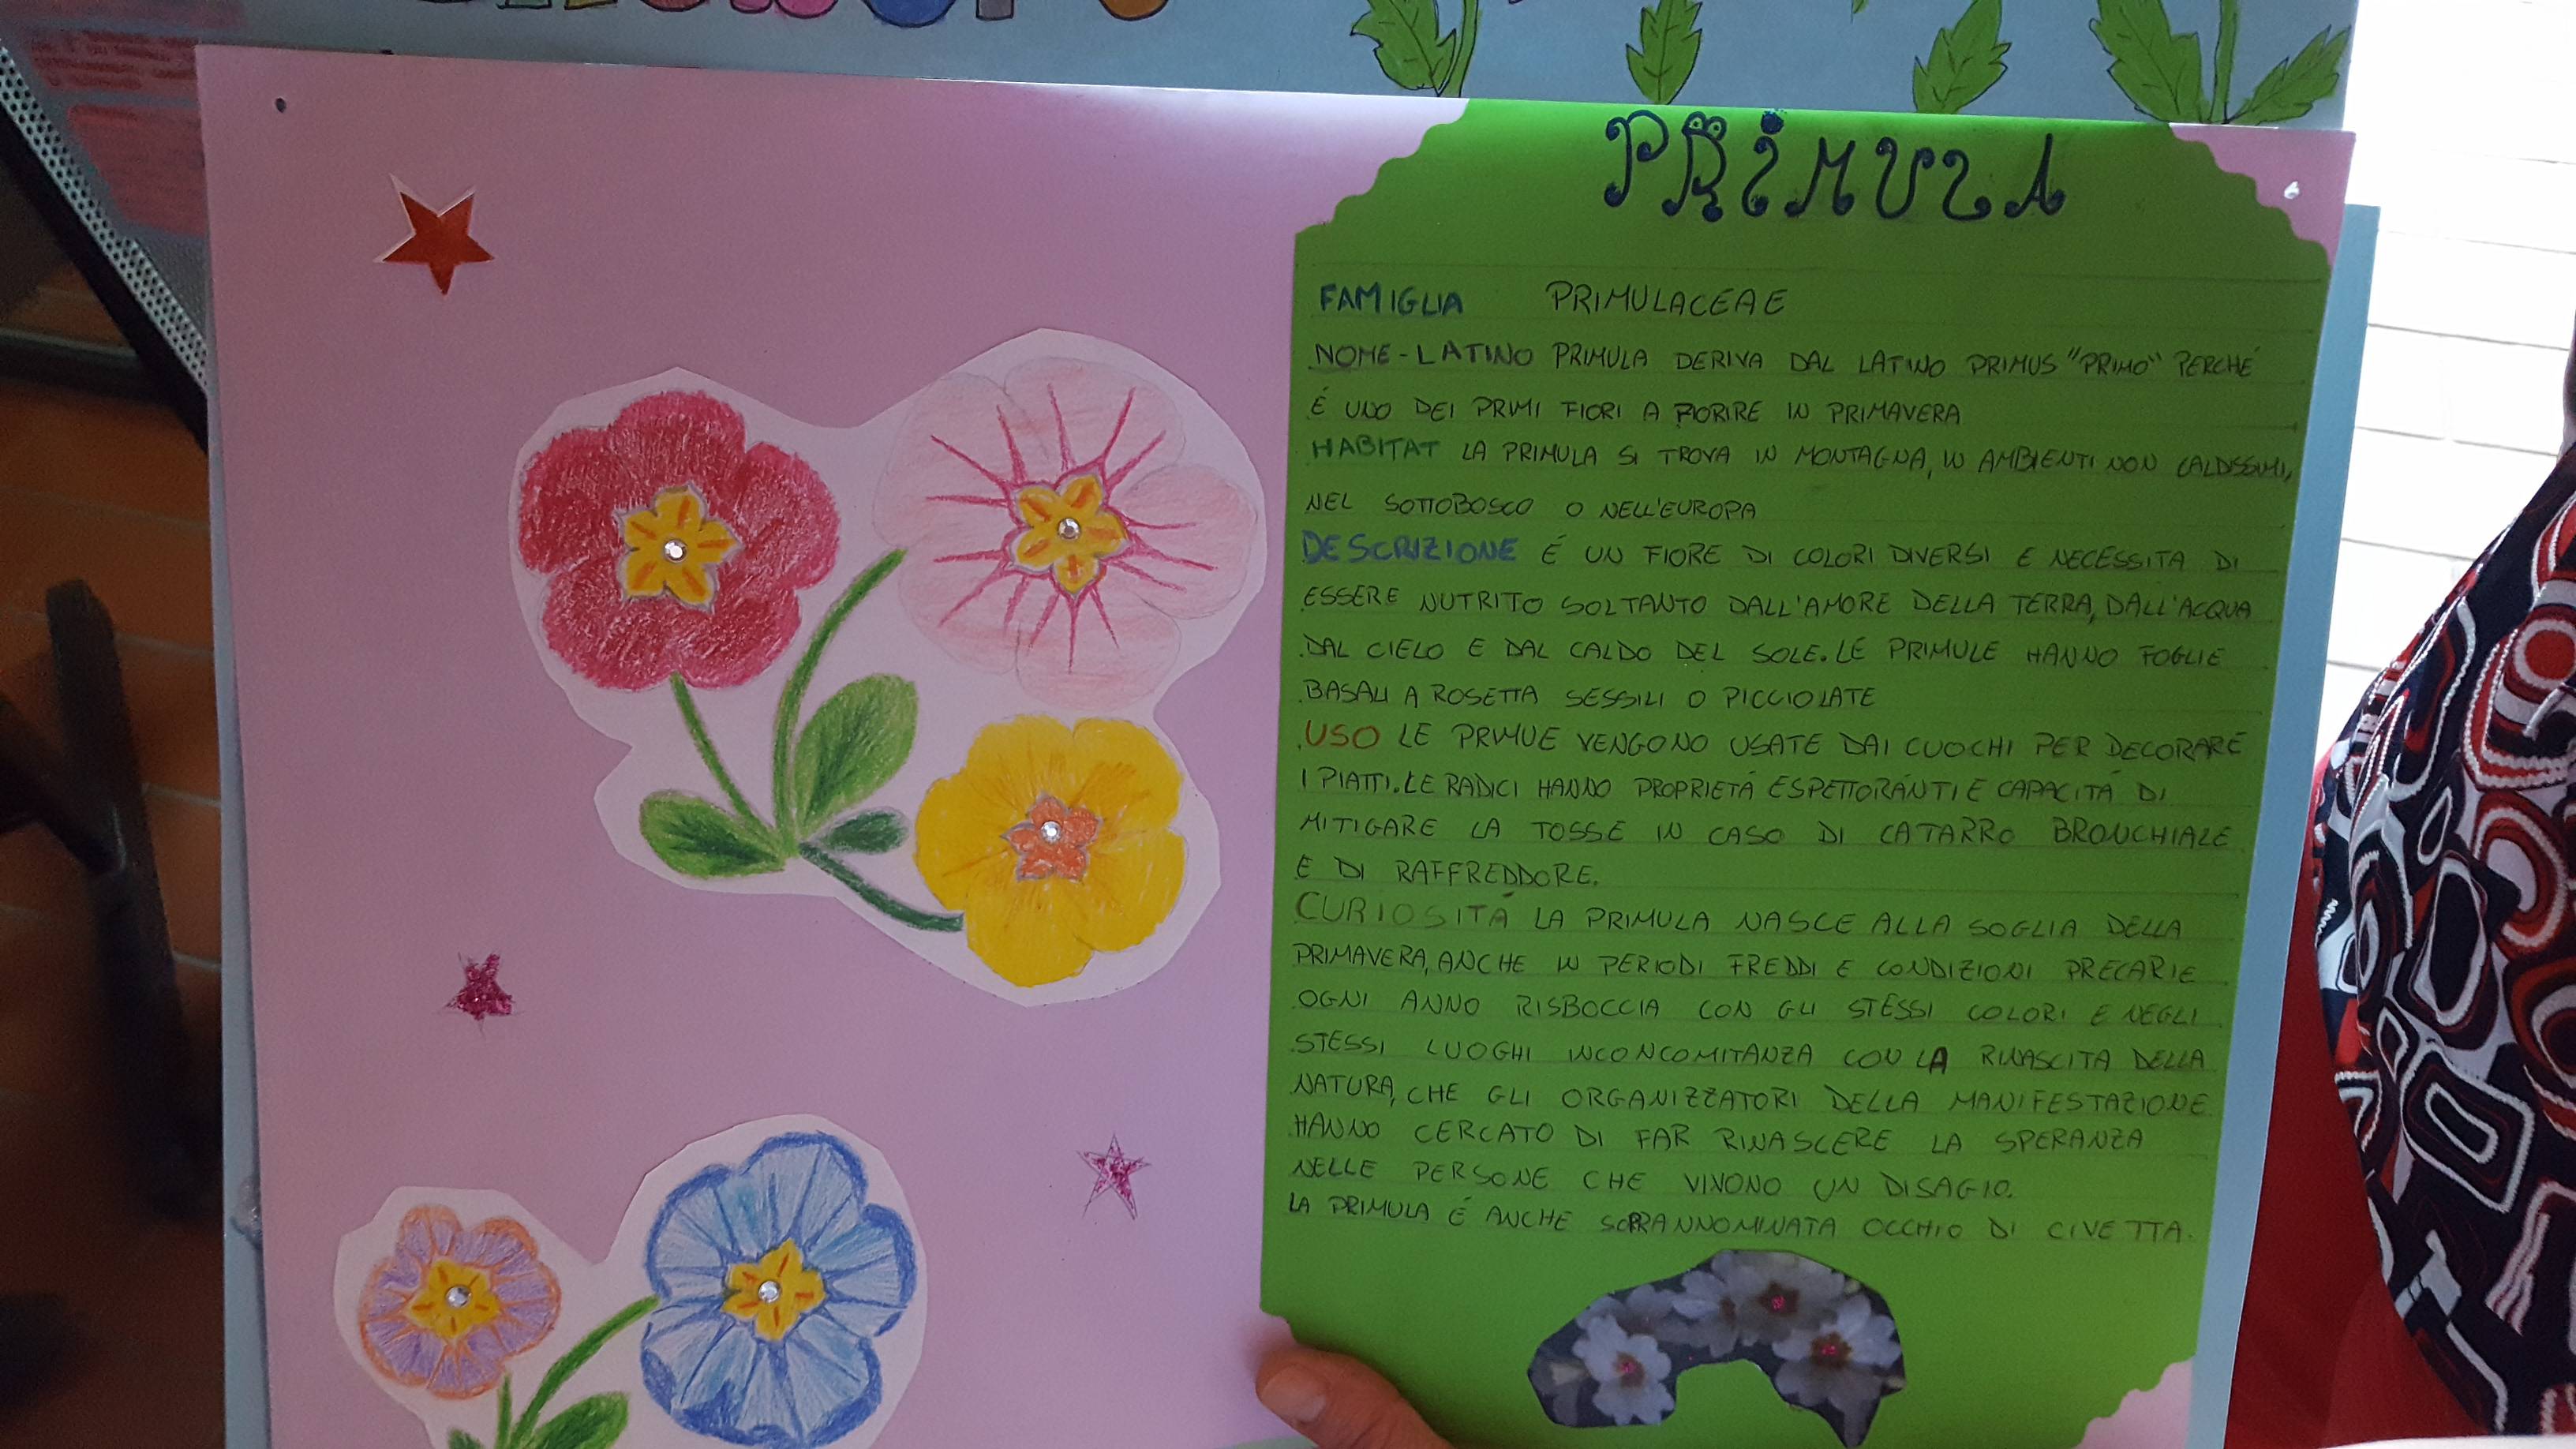 PRIMULA
FAMIGLIA PRIMULACEAE
NOME-LATINO PRIMULA DERIVA DAL LATINO PRIMUS "PRIMO" PERCHÉ
É UNO DEI PRIMI FIORI A FIORIRE IN PRIMAVERA
HABITAT LA PRIMULA SI TROVA IN MONTAGNA, IN AMBIENTI NON CALDISSIMI,
NEL SOTTOBOSCO O NELL'EUROPA
DESCRIZIONE É UN FIORE DI COLORI DIVERSI E NECESSITA DI
ESSERE NUTRITO SOLTANTO DALL'AMORE DELLA TERRA, DALL'ACQUA
DAL CIELO E DAL CALDO DEL SOLE. LE PRIMULE HANNO FOGLIE
BASALI A ROSETTA SESSILI O PICCIOLATE
USO LE PRIMULE VENGONO USATE DAI CUOCHI PER DECORARE
I PIATTI. LE RADICI HANNO PROPRIETÁ ESPETTORANTI E CAPACITÁ DI
MITIGARE LA TOSSE IN CASO DI CATARRO BRONCHIALE
E DI RAFFREDDORE.
CURIOSITÁ LA PRIMULA NASCE ALLA SOGLIA DELLA
PRIMAVERA, ANCHE IN PERIODI FREDDI E CONDIZIONI PRECARIE
OGNI ANNO RISBOCCIA CON GLI STESSI COLORI E NEGLI
STESSI LUOGHI INCONCOMITANZA CON LA RINASCITA DELLA
NATURA, CHE GLI ORGANIZZATORI DELLA MANIFESTAZIONE
HANNO CERCATO DI FAR RINASCERE LA SPERANZA
NELLE PERSONE CHE VIVONO UN DISAGIO.
LA PRIMULA É ANCHE SOPRANNOMINATA OCCHIO DI CIVETTA.